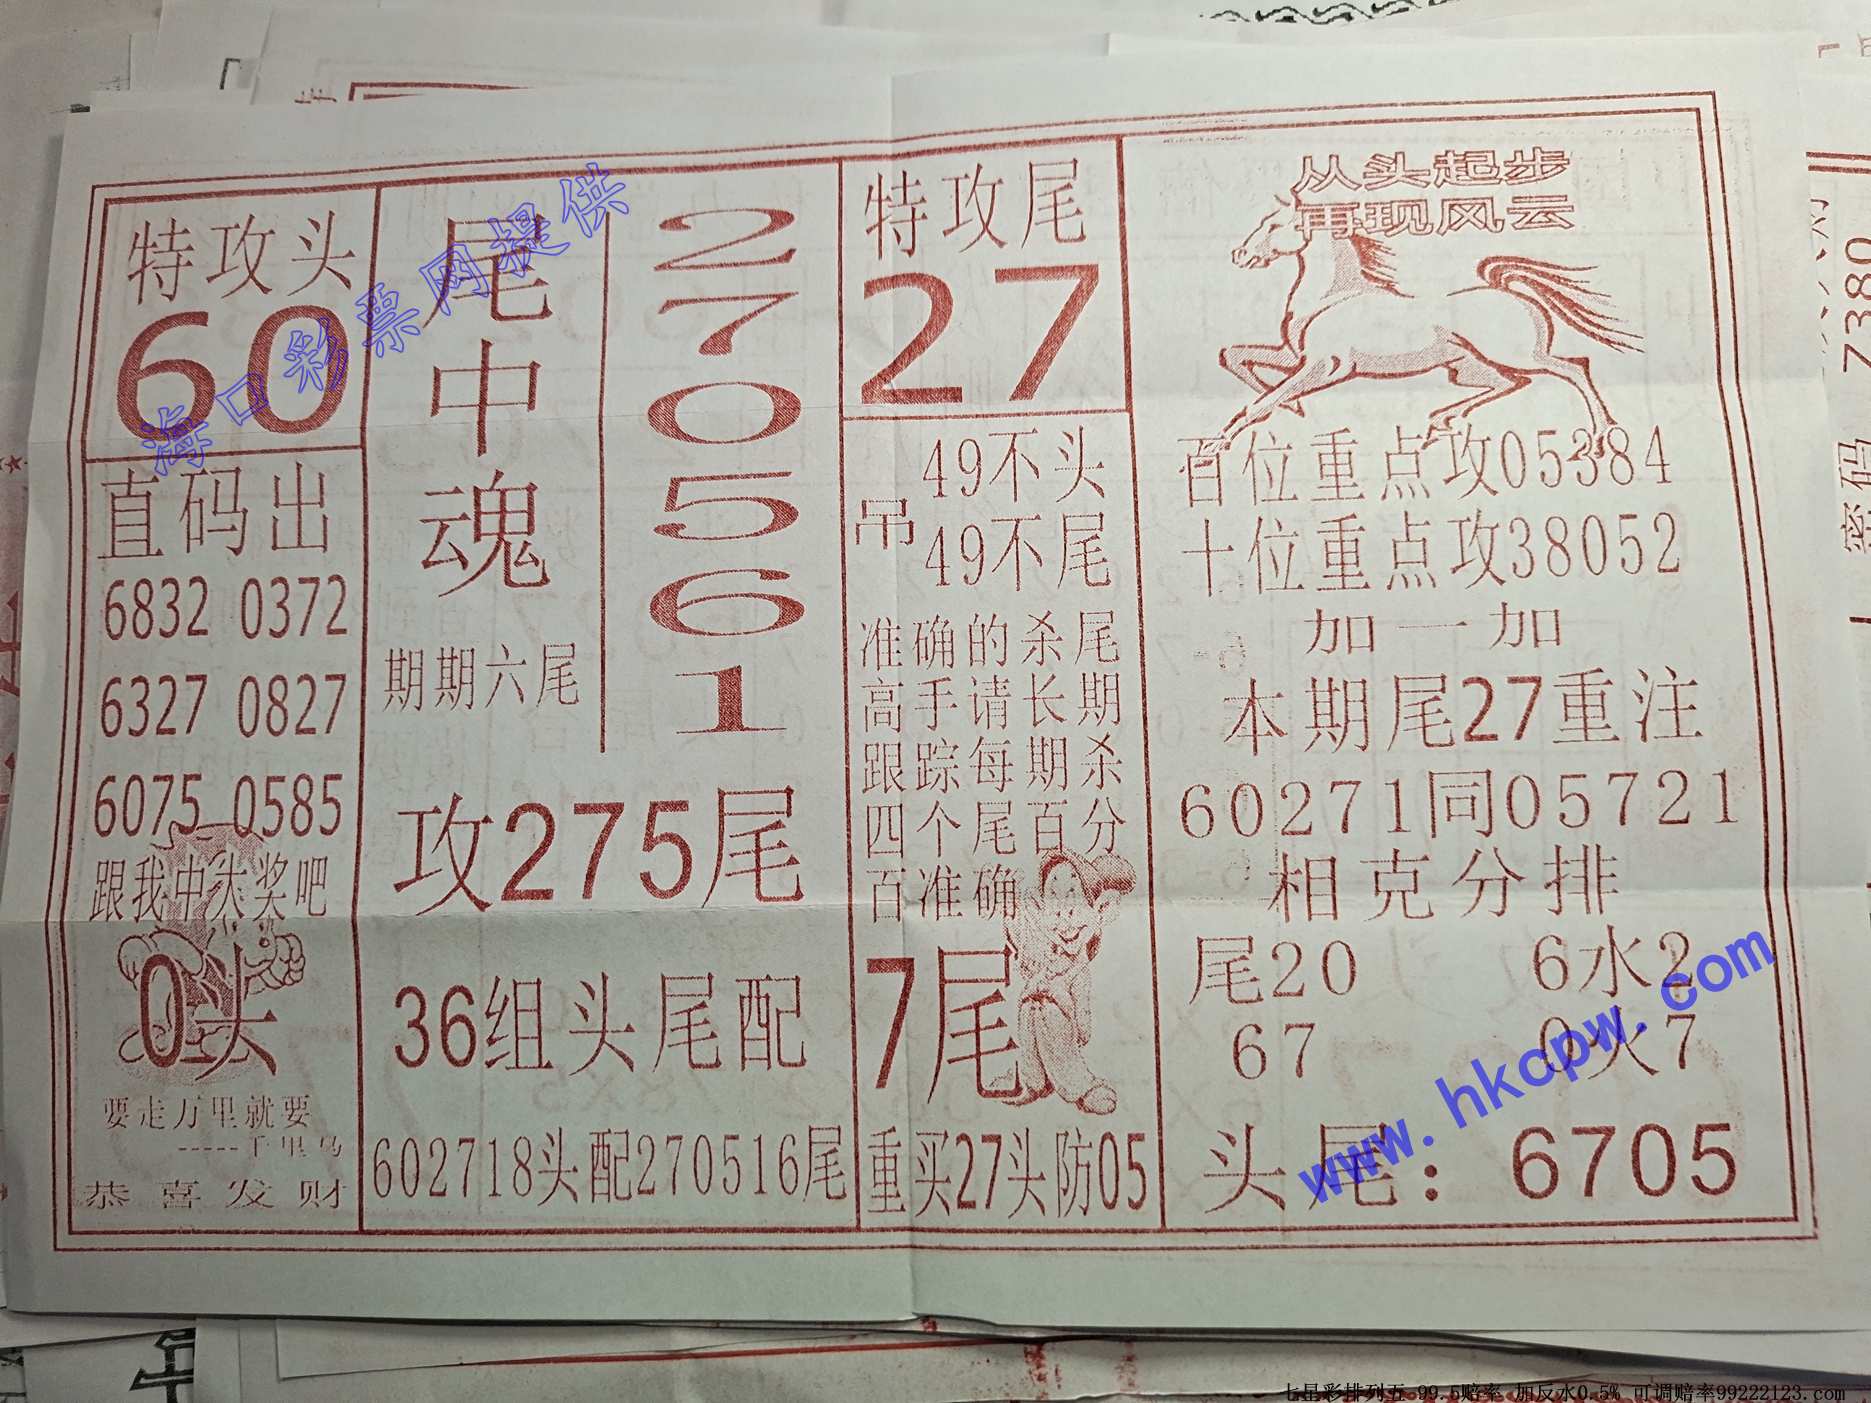 特攻头
60
直码出
6832 0372
6327 0827
6075 0585
跟我中大奖吧
0头
要走万里就要
-----千里马
恭喜发财
尾中魂
期期六尾
270561
攻275尾
36组头尾配
602718头配270516尾
特攻尾
27
吊
49不头
49不尾
准确的杀尾
高手请长期
跟踪每期杀
四个尾百分
百准确
7尾
重买27头防05
从头起步
再现风云
百位重点攻05384
十位重点攻38052
加一加
本期尾27重注
60271同05721
相克分排
尾20 6水2
67 0火7
头尾：6705
海口彩票网提供
www.hkcpw.com
密码 7380
七星彩排列五 99.5赔率 加反水0.5% 可调赔率99222123.com